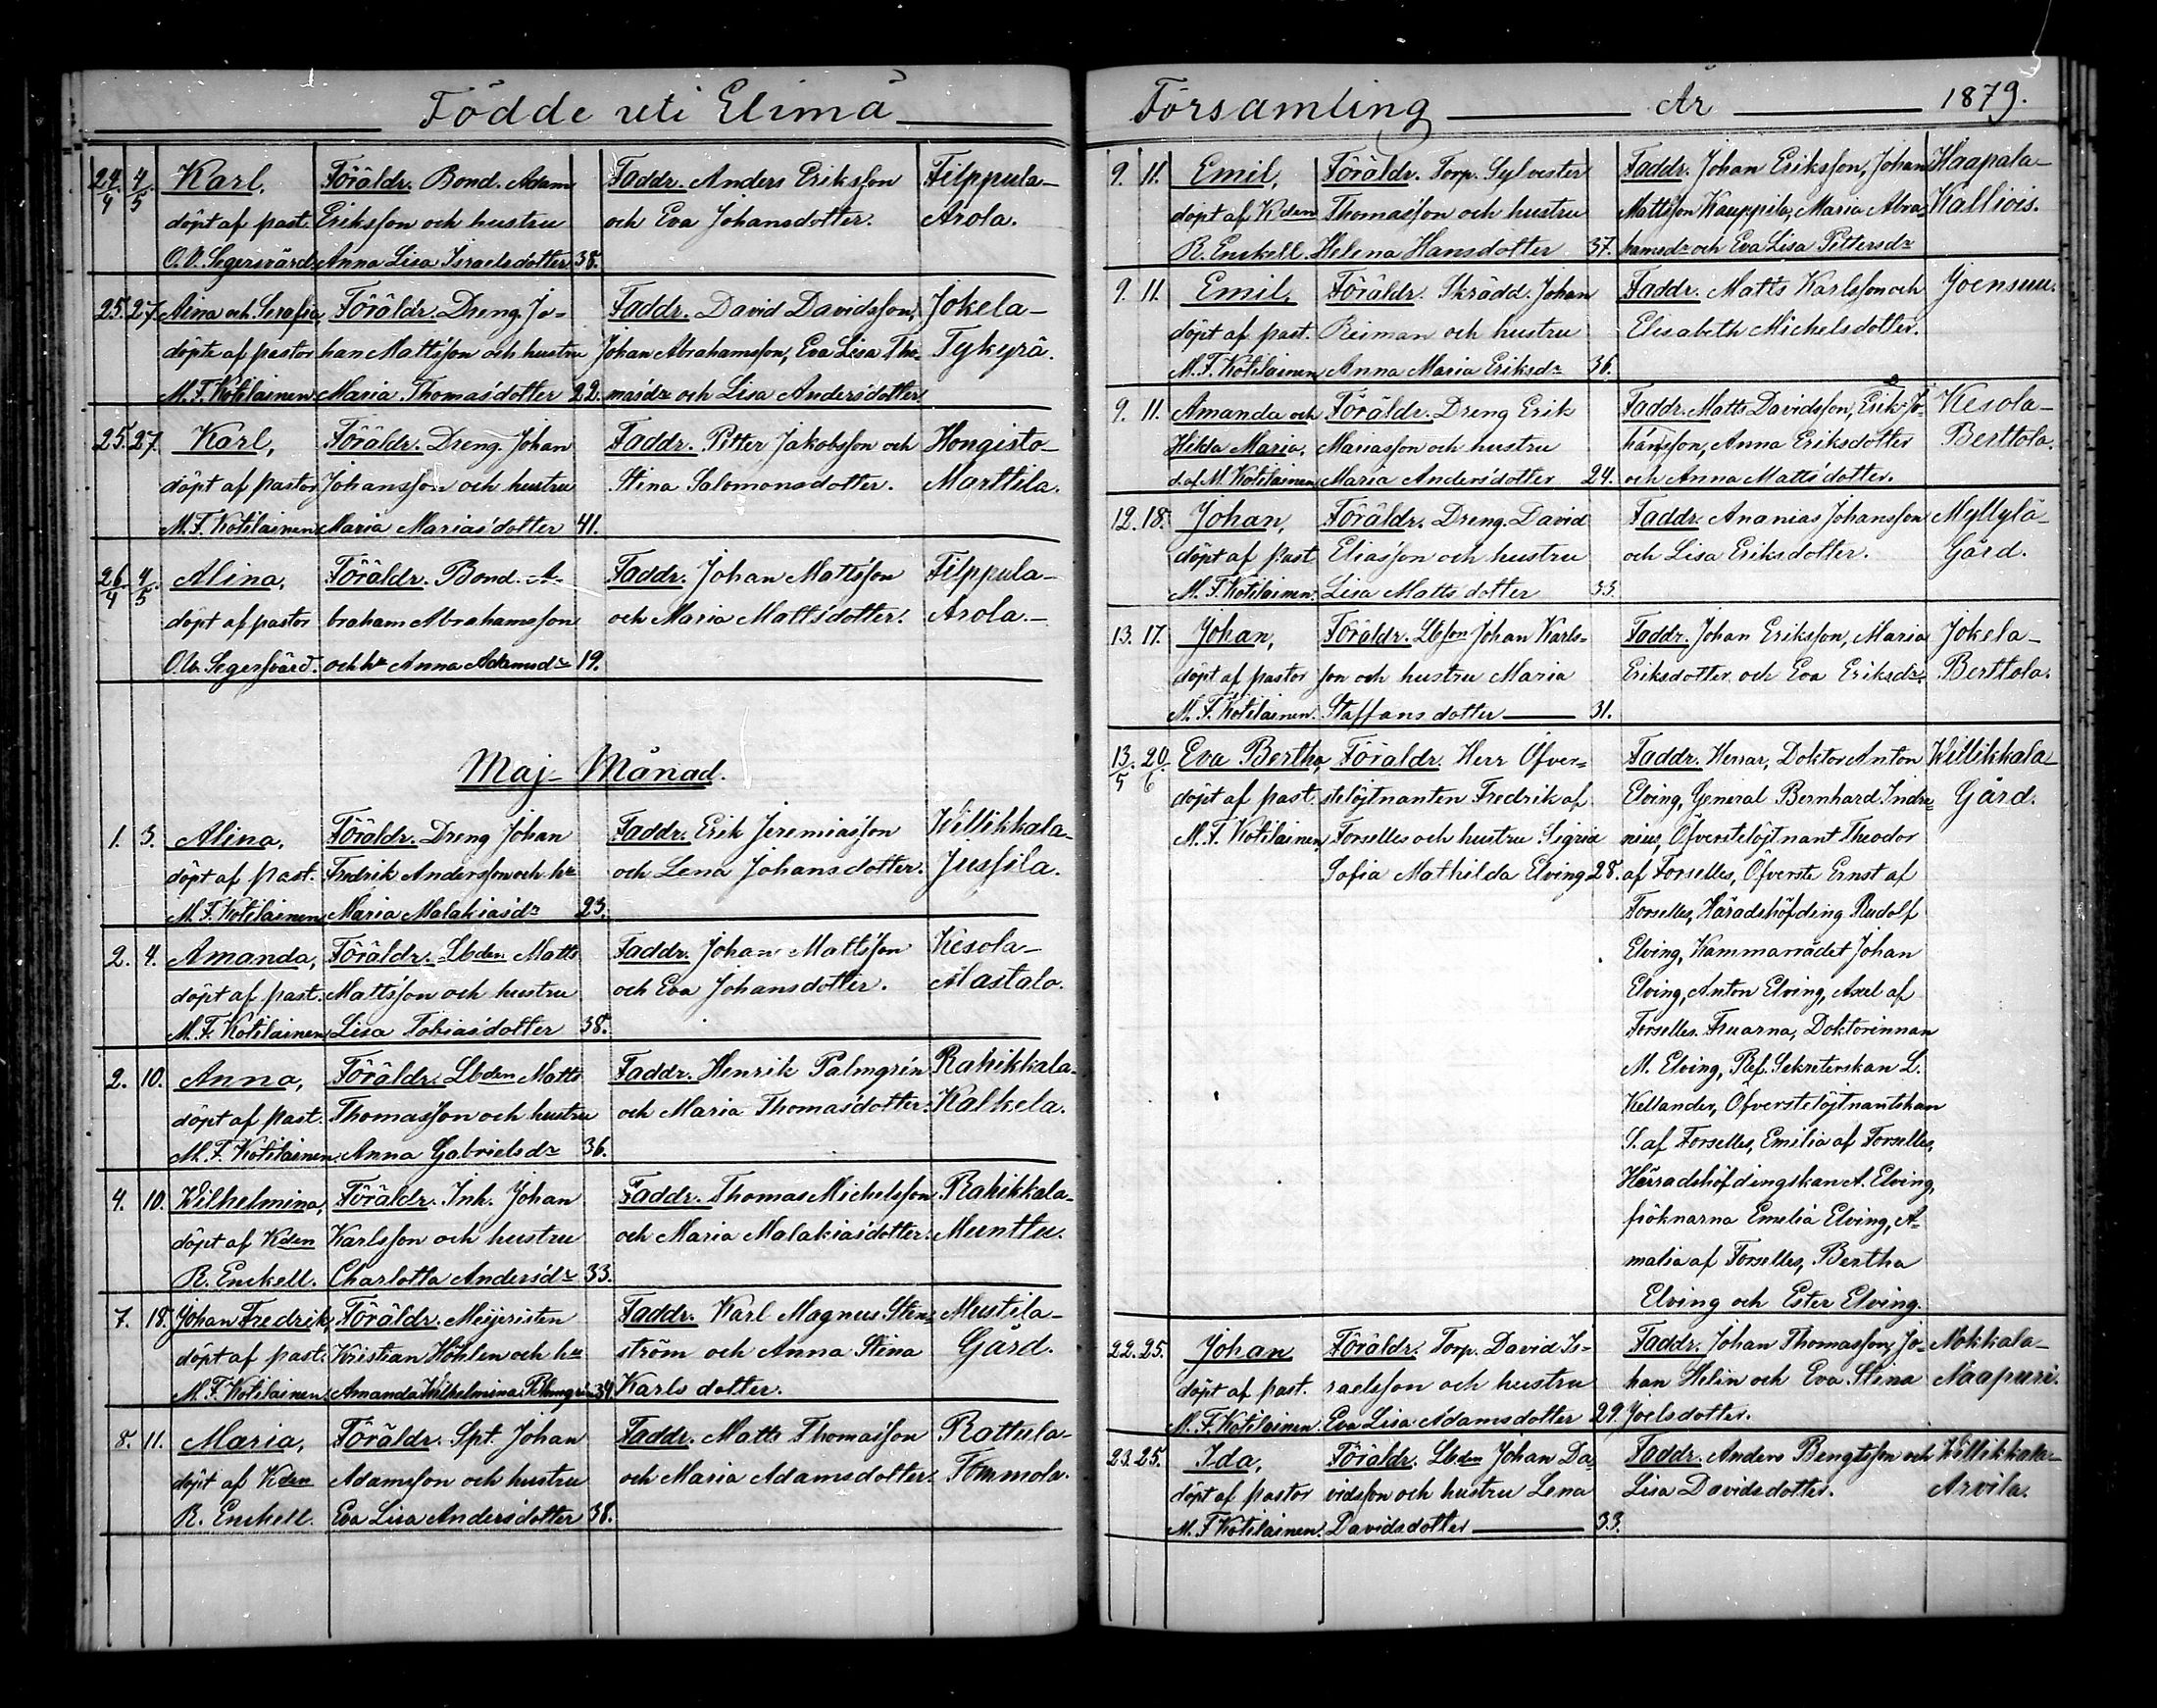 Födde uti Elimä
24/4 4/5 Karl, Föräldr. Bond. Adam Faddr. Anders Eriksson Filppula-
döpt af past. Eriksson och hustru och Eva Johansdotter. Arola.
O. V. Segersvärd Anna Lisa Israelsdotter 38.
25. 27. Aina och Serafia, Föräldr. Dreng. Jo- Faddr. David Davidsson, Jokela-
döpte af pastor han Mattsson och hustru Johan Abrahamsson, Eva Lisa Tho- Tykyrä.
M. F. Kotilainen Maria Thomasdotter 22. masdr och Lisa Andersdotter
25. 27. Karl, Föräldr. Dreng. Johan Faddr. Petter Jakobsson och Hongisto-
döpt af pastor Johansson och hustru Stina Salomonsdotter. Marttila.
M. F. Kotilainen Maria Mariasdotter 41.
26/4 4/5 Alina, Föräldr. Bond. A- Faddr. Johan Mattsson Filppula-
döpt af pastor braham Abrahamsson och Maria Mattsdotter. Arola.-
O. W. Segersvärd. och hu Anna Adamsdr 19.
Maj-Månad.
1. 3. Alina, Föräldr. Dreng Johan Faddr. Erik Jeremiasson Willikkala-
döpt af past. Fredrik Andersson och hu och Lena Johansdotter. Jussila.
M. F. Kotilainen Maria Malakiasdr 23.
2. 4. Amanda, Föräldr. Lbden Matts Faddr. Johan Mattsson Kesola-
döpt af past. Mattsson och hustru och Eva Johansdotter. Alastalo.
M. F. Kotilainen Lisa Tobiasdotter 38.
2. 10. Anna, Föräldr. Lbden Matts Faddr. Henrik Palmgrén Rahikkala-
döpt af past. Thomasson och hustru och Maria Thomasdotter. Kalkela.
M. F. Kotilainen. Anna Gabrielsdr 36.
4. 10. Wilhelmina, Föräldr. Inh. Johan Faddr. Thomas Michelsson Rahikkala-
döpt af Kden Karlsson och hustru och Maria Malakiasdotter. Munttu.
R. Enckell. Charlotta Andersdr 33.
7. 18. Johan Fredrik, Föräldr. Meijeristen Faddr. Karl Magnus Sten- Mustila-
döpt af past. Kristian Höhlen och hu ström och Anna Stina Gård.
M. F. Kotilainen. Amanda Wilhelmina 34. Karlsdotter.
8. 11. Maria, Föräldr. Spt. Johan Faddr. Matts Thomasson Rattula-
döpt af Kden Adamsson och hustru och Maria Adamsdotter. Tommola.
R. Enckell. Eva Lisa Andersdotter 38.
Församling År 1879.
9. 11. Emil, Föräldr. Torp. Sylvester Faddr. Johan Eriksson, Johan Haapala-
döpt af Kden Thomasson och hustru Mattsson Kauppila, Maria Abra- Kalliois.
R. Enckell. Helena Hansdotter 37. hamsdr och Eva Lisa Pettersdr
9. 11. Emil, Föräldr. Skrädd. Johan Faddr. Matts Karlsson och Joensuu.
döpt af past. Reiman och hustru Elisabeth Michelsdotter.
M. F. Kotilainen Anna Maria Eriksdr 36.
9. 11. Amanda och Föräldr. Dreng Erik Faddr. Matts Davidsson, Erik Jo- Kesola-
Hilda Maria, Mariasson och hustru hansson, Anna Eriksdotter Berttola.
d. af M. Kotilainen Maria Andersdotter 24. och Anna Mattsdotter.
12. 18. Johan, Föräldr. Dreng. David Faddr. Ananias Johansson Myllylä-
döpt af past Eliasson och hustru och Lisa Eriksdotter. Gård.
M. F. Kotilainen. Lisa Mattsdotter 33.
13. 17. Johan, Föräldr. Lbson Johan Karls- Faddr. Johan Eriksson, Maria Jokela-
döpt af pastor son och hustru Maria Eriksdotter och Eva Eriksdr. Berttola.
M. F. Kotilainen. Staffansdotter 31.
13/5 20/6 Eva Bertha, Föräldr. Herr Öfver- Faddr. Herrar, Doktor Anton Willikkala-
döpt af past. stelöjtnanten Fredrik af Elving, General Bernhard Indre- Gård.
M. F. Kotilainen, Forselles och hustru Sigrid nius, Öfverstelöjtnant Theodor
Sofia Mathilda Elving 28. af Forselles, Öfverste Ernst af
Forselles, Häradshöfding Rudolf
Elving, Kammarrådet Johan
Elving, Anton Elving, Axel af
Forselles. Fruarna, Doktorinnan
M. Elving, Ref. Sekreterskan L.
Kellander, Öfverstelöjtnantskan
S. af Forselles, Emilia af Forselles,
Härradshöfdingskan A. Elving,
fröknarna Emelia Elving, A-
malia af Forselles, Bertha
Elving och Ester Elving.
22. 25. Johan Föräldr. Torp. David Is- Faddr. Johan Thomasson, Jo- Mokkala-
döpt af past. raelsson och hustru han Helin och Eva Stina Naapuri.
M. F. Kotilainen Eva Lisa Adamsdotter 29. Joelsdotter.
23. 25. Ida, Föräldr. Lbden Johan Da- Faddr. Anders Bengtsson och Willikkala-
döpt af pastor vidsson och hustru Lena Lisa Davidsdotter. Arvila.
M. F. Kotilainen. Davidsdotter 33.